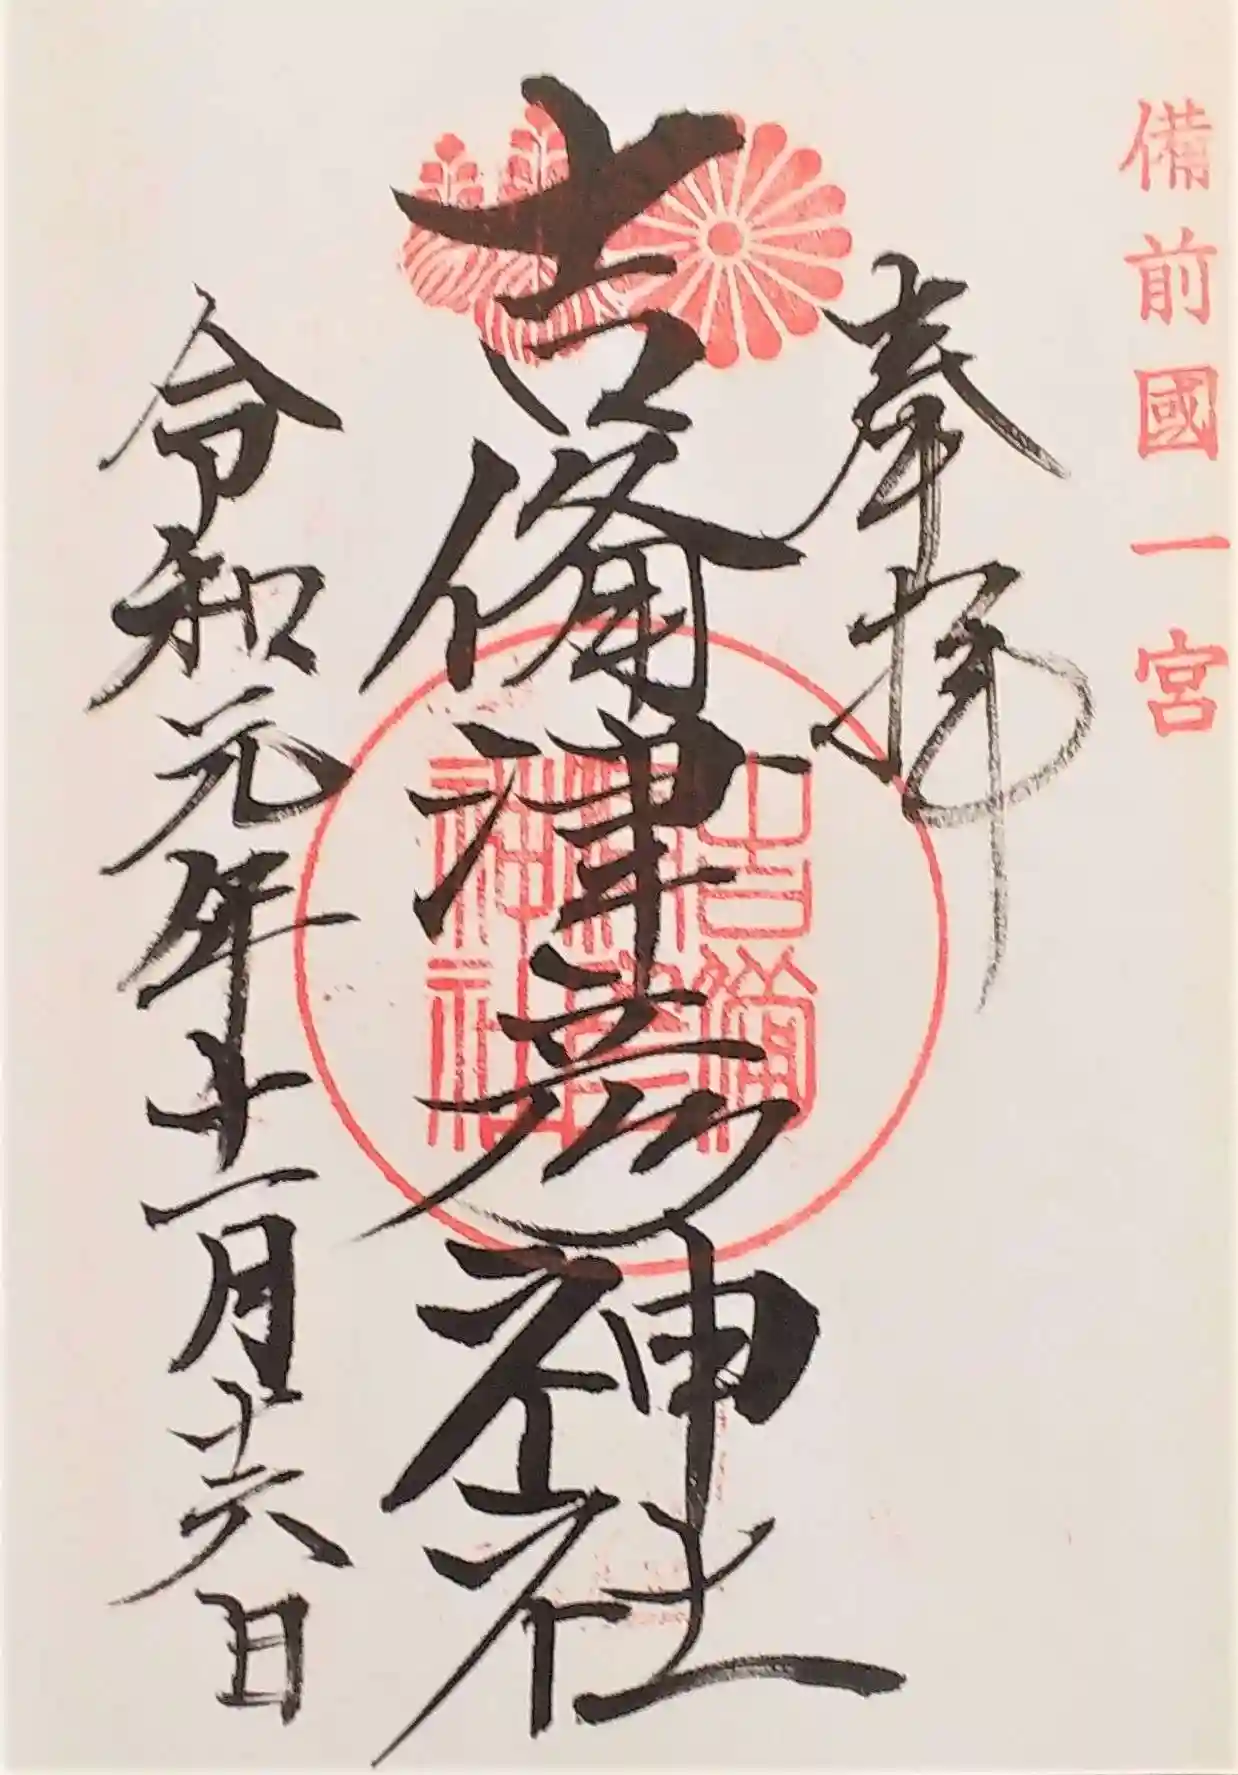 備前國一宮
奉拝
吉備津彦神社
吉備
津彦
神社
令和元年十一月十六日